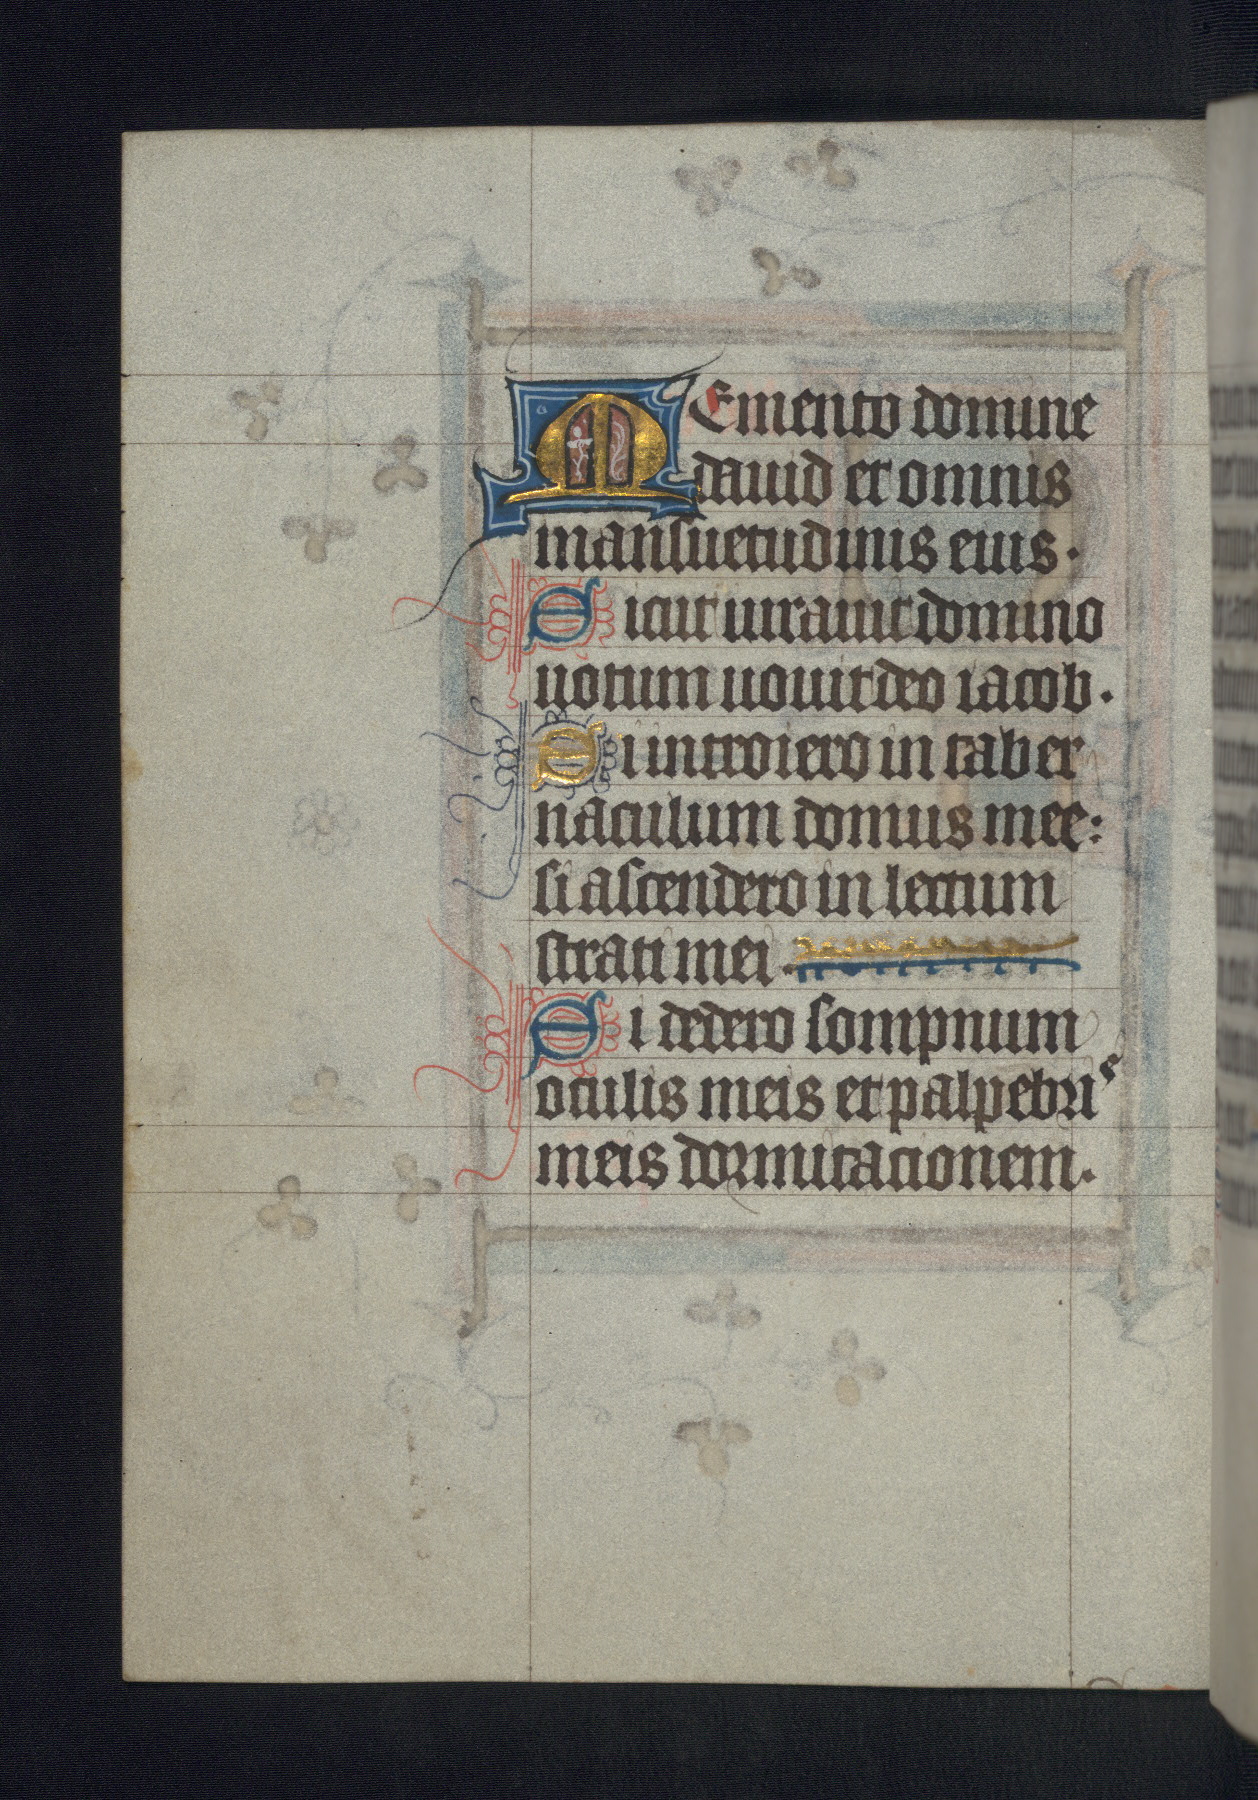 Memento domine
dauid et omnis
mansuetudinis eius.
Sicut iurauit domino
uotum uouit deo iacob.
Si introiero in taber
naculum domus mee:
si ascendero in lectum
strati mei.
Si dedero sompnum
oculis meis et palpebris
meis dormitacionem.